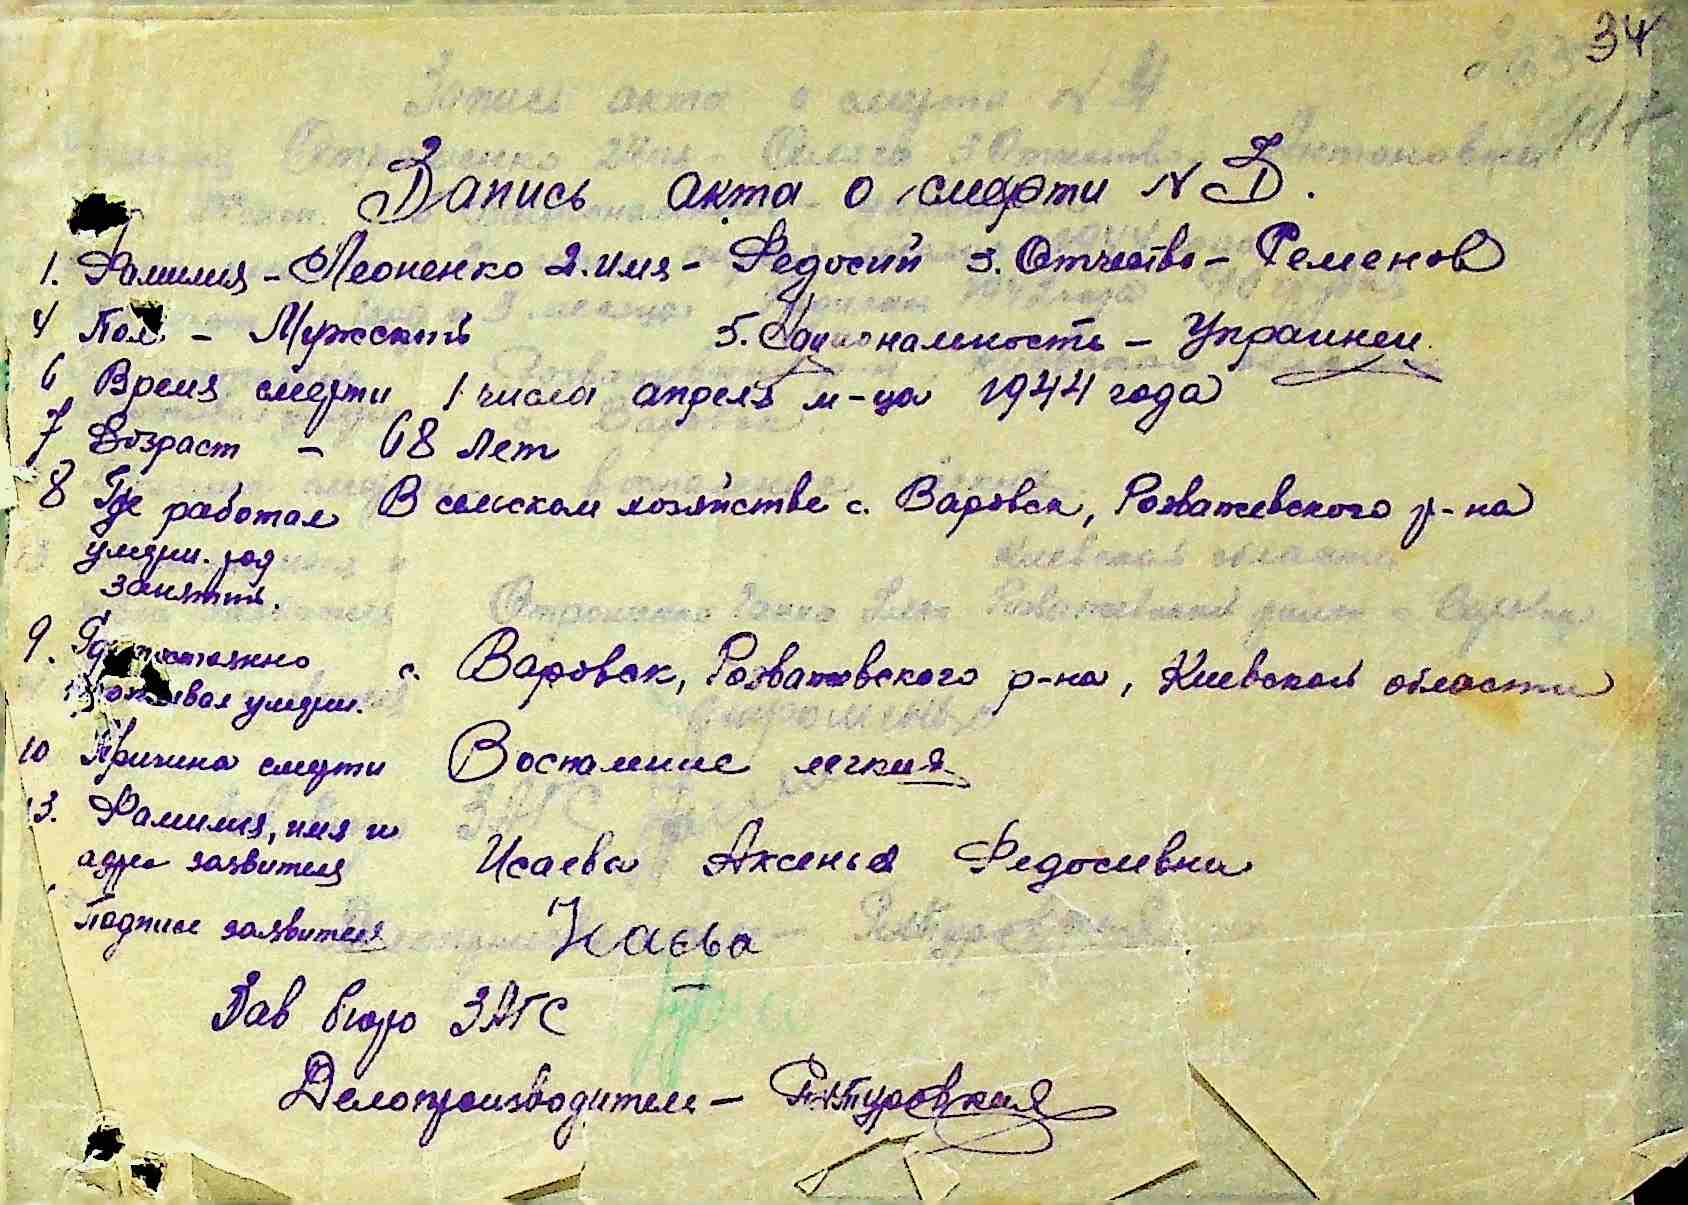 34
117
Запись акта о смерти N 5.
1. Фамилия - Леоненко 2. имя - Федосий 3. Отчество - Семенов
4 Пол - Мужской 5. Национальность - Украинец
6 Время смерти 1 числа апреля м-ца 1944 года
7 Возраст - 68 лет
8 Где работал В сельском хозяйстве с. Варовск, Розважевского р-на
умерш. род
занятия.
9. Где постоянно с. Варовск, Розважевского р-на, Киевской области
проживал умерш.
10 Причина смерти Воспаление легких
13. Фамилия, имя и
адрес заявителя Исаева Аксенья Федосиевна
Подпись заявителя
Зав бюро ЗАГС
Делопроизводитель -